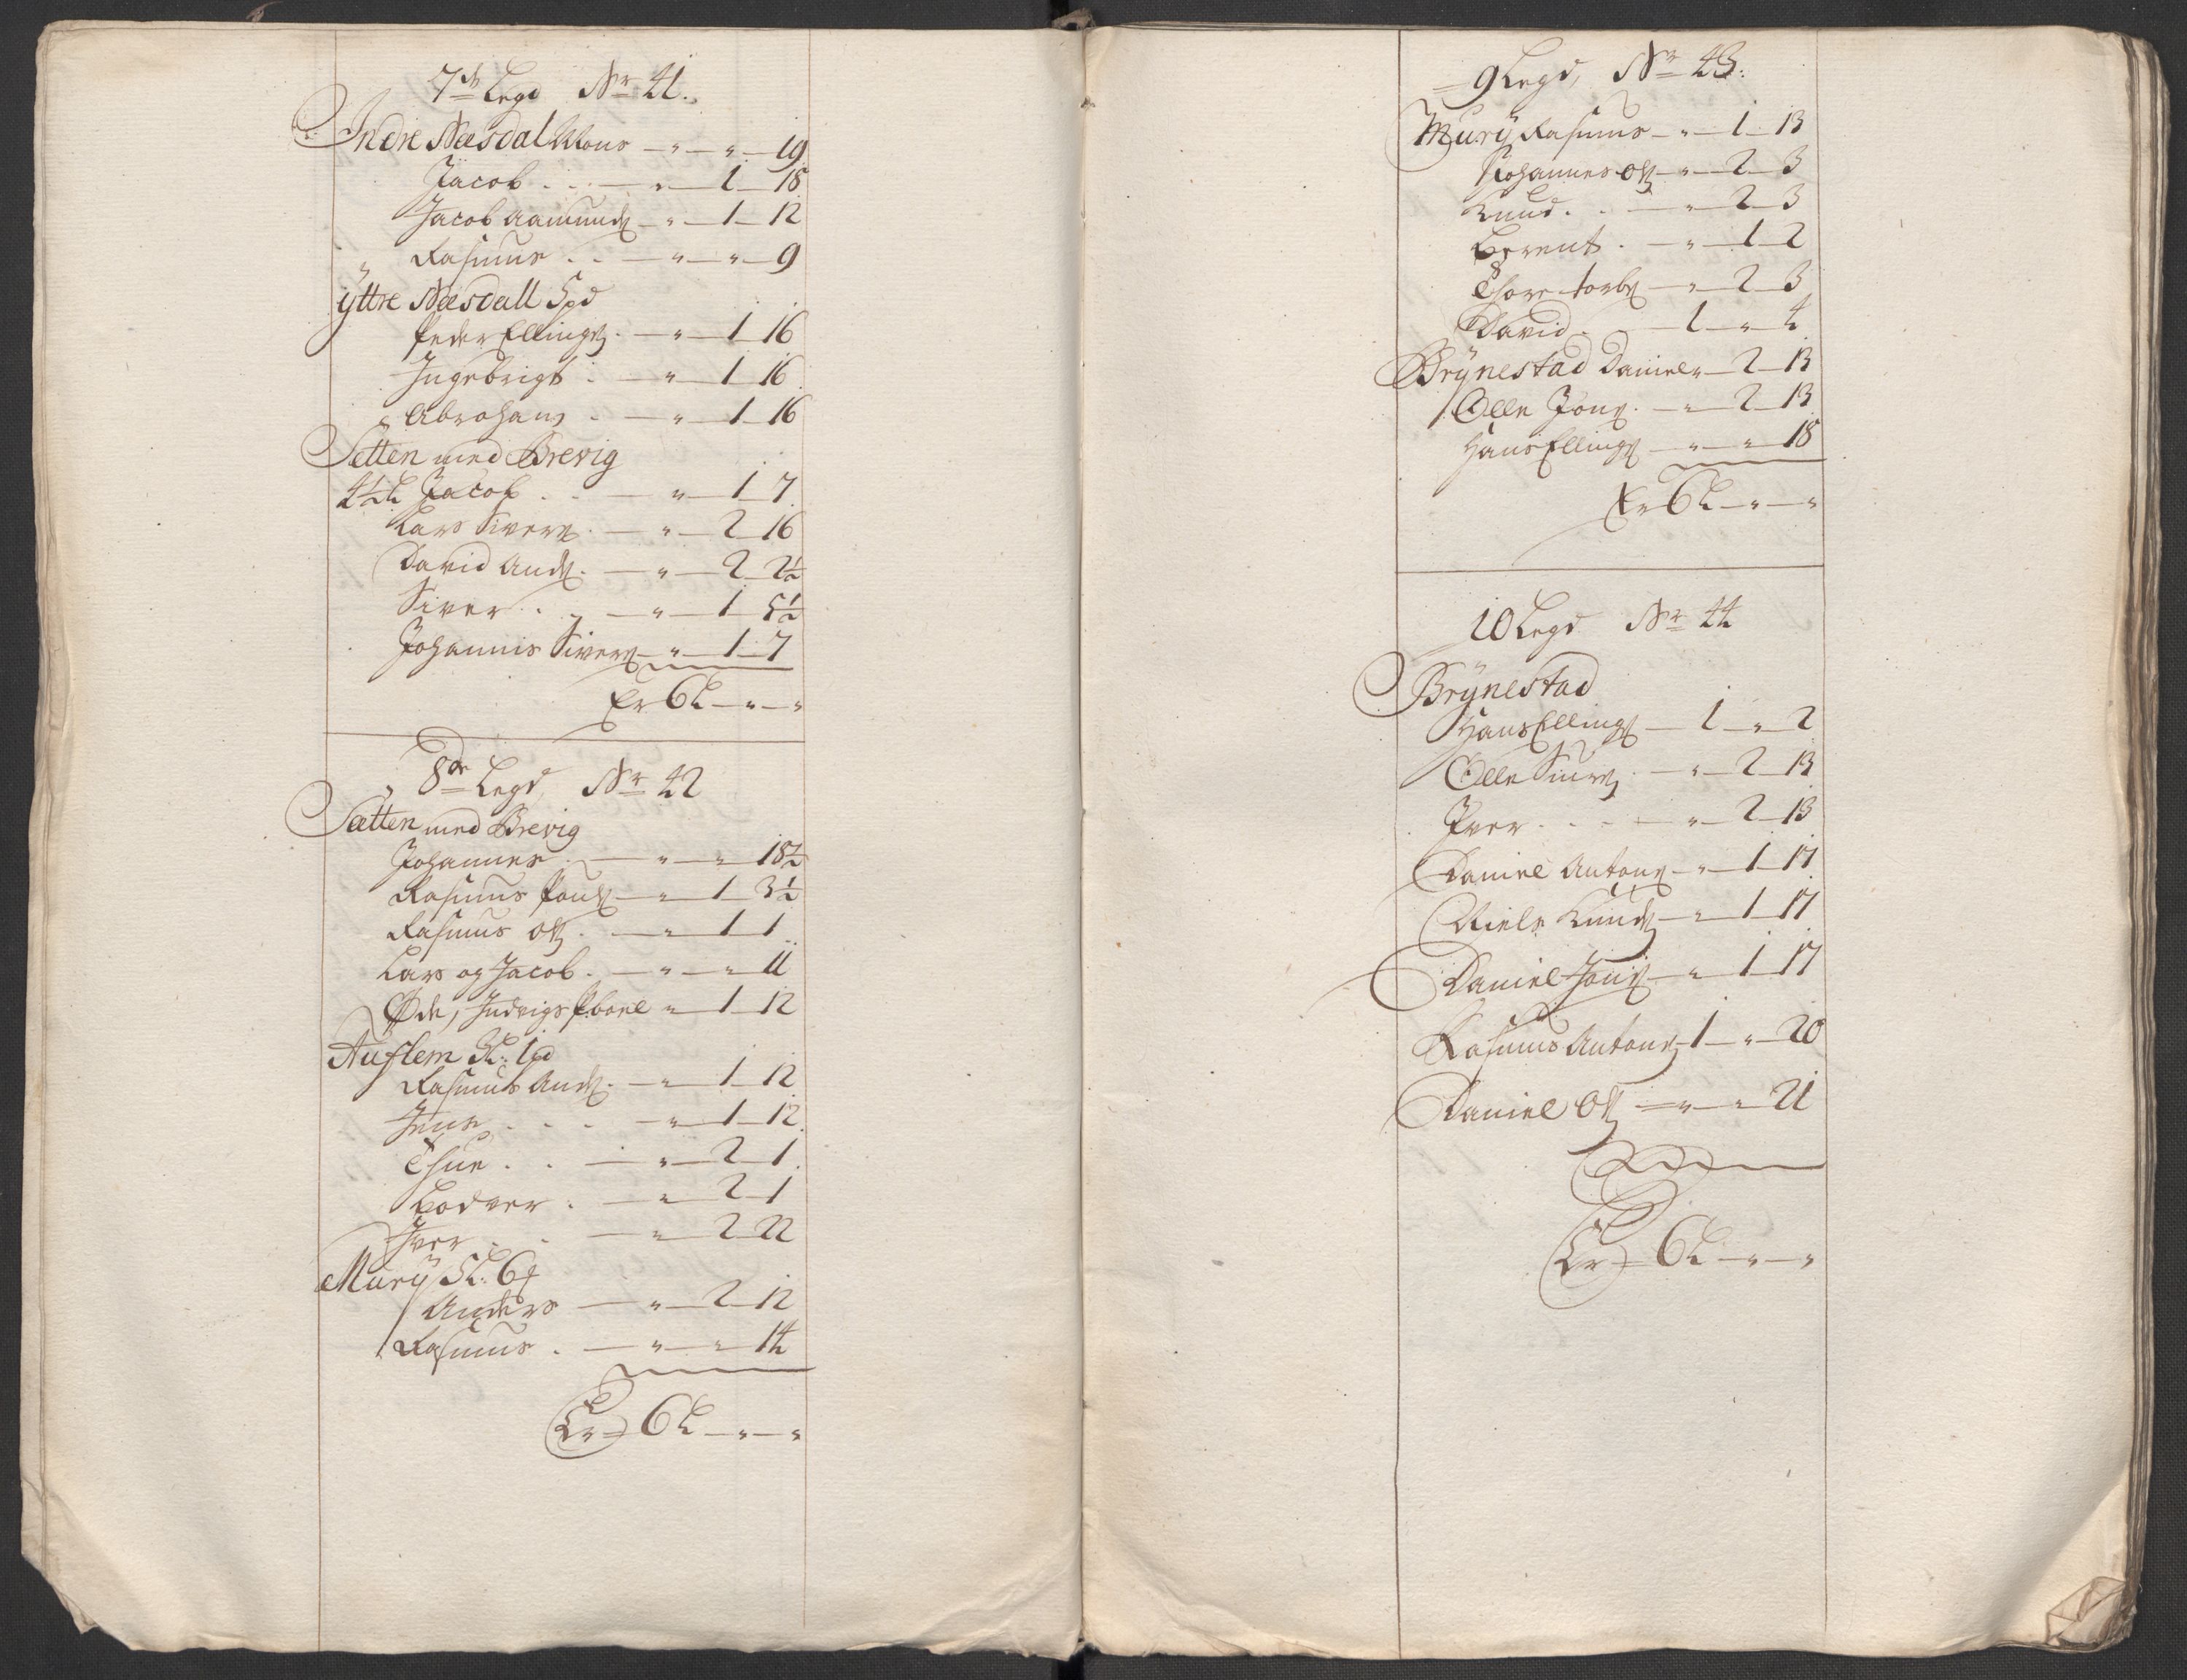 7de Legd Nr 41.
Indre Næsdal Mons — " — " — 19
Jacob . . — " — 1 — 18
Jacob Aamunds — " — 1 — 12
" Rasmus . . — " — " — 9
ÿttre Næsdall 5 pd
Peder Ellings. — " — 1 16
Ingebrigt . — " — 1 16
Abraham . — " — 1 16
Sætten med Brevig
4½ L Jacob . . — " — 1 7
Lars Sivers . — " — 2 16
David Ands. — " — 2 2½
Siver . . — " — 1 5½
Johannis Sivers — " — 1 7
Er 6 L — " — "
8de Legd, Nr 42
Sætten med Brevig
Johannes . — " — " 18½
Rasmus Pouls — " — 1 3½
Rasmus Ols . — " — 1 1
Lars og Jacob . — " — " 11
Øde, Indvigs Pboel " — 1 12
Auflem 3L: 1pd
Rasmus Ands. — " — 1 12
Jens . . . — " — 1 12
Thue . . — " — 2 1
Bodver . — " — 2 1
Iver . . — " — 2 22
Murÿ 5L: 6
Anders — " — 2 12
Rasmus . — " — " 14
Er 6 L — " — "
9 Legd, Nr 43.
Murÿ Rasmus — " — 1 13
Johannes Ols — " — 2 3
Knud . . — " — 2 3
Berent . — " — 1 2
Thore Torbs — " — 2 3
David . — 1 — " 4
Brÿnestad Daniel " — 2 13
Olle Jons . — " — 2 13
Hans Ellings — " — " 18
Er 6 L — " — "
10 Legd Nr 44
Brÿnestad
Hans Ellings — 1 — " 2
Olle Siurs . — " — 2 13
Iver . . . — " — 2 13
Daniel Antons — " — 1 17
Niels Knuds — " — 1 17
Daniel Jons — " — 1 17
Rasmus Antons — 1 — " — 20
Daniel Ols — " — " 21
Er 6 L — " — "